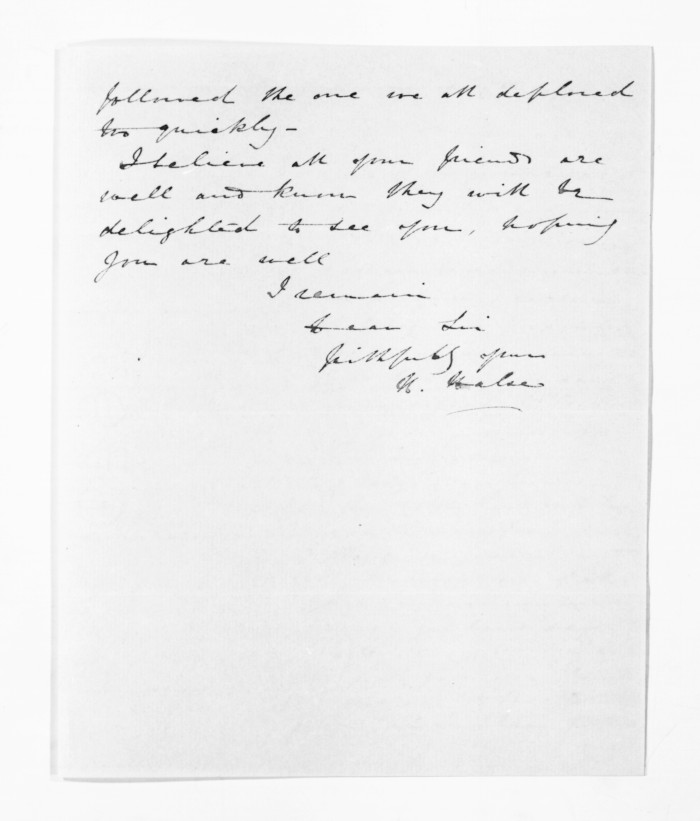 followed the one we all deplored
too quickly -
I believe all your friends are
well and know they will be
delighted to see you, hoping
you are well
I remain
Dear Sir
Faithfully yours
H. Halse